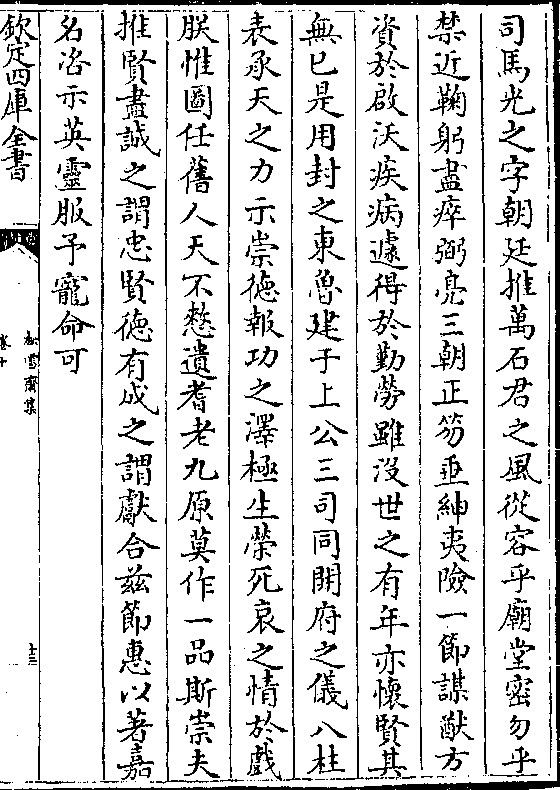 司馬光之字朝廷推萬石君之風從容乎廟堂密勿乎
禁近鞠躬盡瘁弼亮三朝正笏垂紳夷險一節謀猷方
資於啟沃疾病遽得於勤勞雖沒世之有年亦懷賢其
無已是用封之東魯建于上公三司同開府之儀八柱
表承天之力示崇徳報功之澤極生榮死哀之情於戲
朕惟圖任舊人天不憗遺耆老九原莫作一品斯崇夫
推賢盡誠之謂忠賢徳有成之謂獻合兹節惠以著嘉
名咨示英靈服予寵命可
欽定四庫全書
松雪齋集
卷十
十三